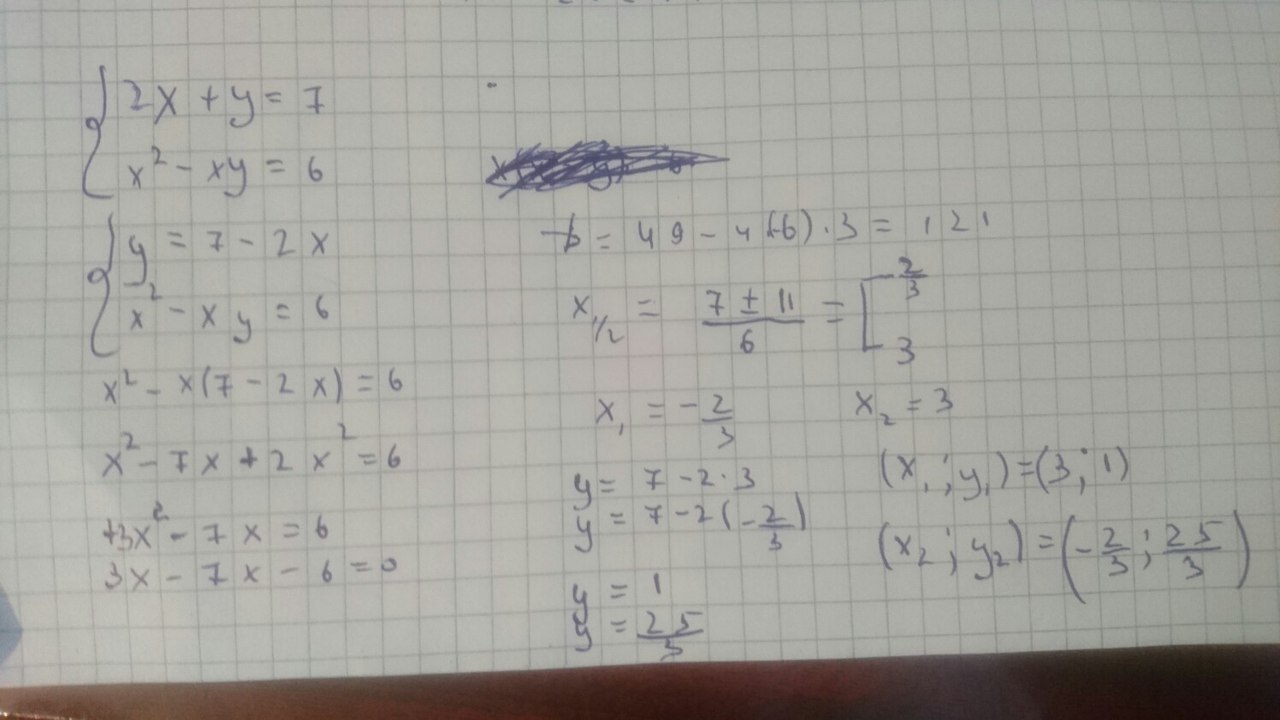 2x + y = 7
x² - xy = 6
y = 7 - 2x
x² - xy = 6
x² - x(7 - 2x) = 6
x² - 7x + 2x² = 6
+3x² - 7x = 6
3x - 7x - 6 = 0
D = 49 - 4(-6)·3 = 121
x₁/₂ = (7 ± 11)/6 = [ -2/3
3
x₁ = -2/3 x₂ = 3
y = 7 - 2·3
y = 7 - 2(-2/3)
y = 1
y = 25/3
(x₁; y₁) = (3; 1)
(x₂; y₂) = (-2/3; 25/3)